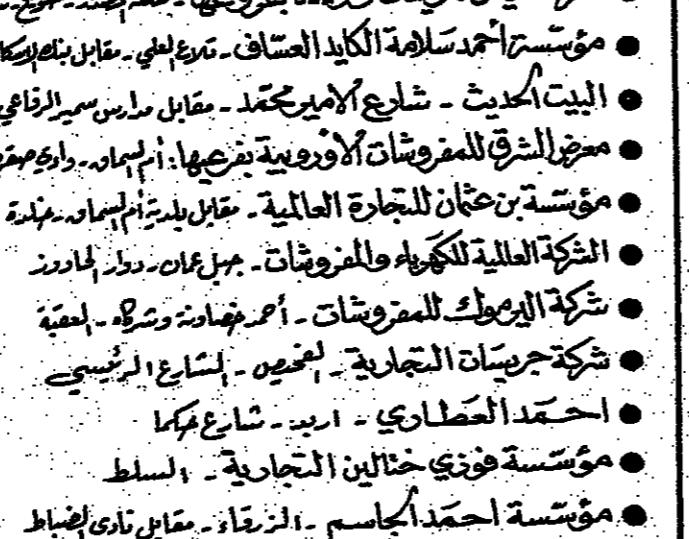 ● مؤسسة أحمد سلامة الكايد العساف - تلاع العلي - مقابل بنك الإسكا
● البيت الحديث - شارع الأمير محمد - مقابل مدارس سمير الرفاعي
● معرض الشرق للمفروشات الأوروبية بفرعيها: أم السماق - وادي صقر
● مؤسسة بن عثمان للتجارة العالمية - مقابل بلدية أم السماق - خلدة
● الشركة العالمية للكهرباء والمفروشات - جبل عمان - دوار الحاووز
● شركة اليرموك للمفروشات - أحمد خصاونة وشركاه - العقبة
● شركة جريسات التجارية - الفحيص - الشارع الرئيسي
● احمد العطاري - اربد - شارع حكما
● مؤسسة فوزي ختالين التجارية - السلط
● مؤسسة احمد الجاسم - الزرقاء - مقابل نادي الضباط